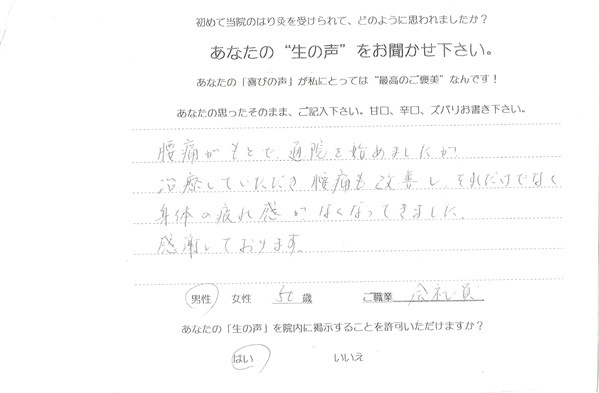 初めて当院のはり灸を受けられて、どのように思われましたか？
あなたの“生の声”をお聞かせ下さい。
あなたの「喜びの声」が私にとっては“最高のご褒美”なんです！
あなたの思ったそのまま、ご記入下さい。甘口、辛口、ズバリお書き下さい。
腰痛がもとで、通院を始めましたが
治療していただき腰痛も改善し、それだけでなく
身体の疲れ感がなくなってきました。
感謝しております。
男性 女性 歳 ご職業 会社員
あなたの「生の声」を院内に掲示することを許可いただけますか？
はい いいえ